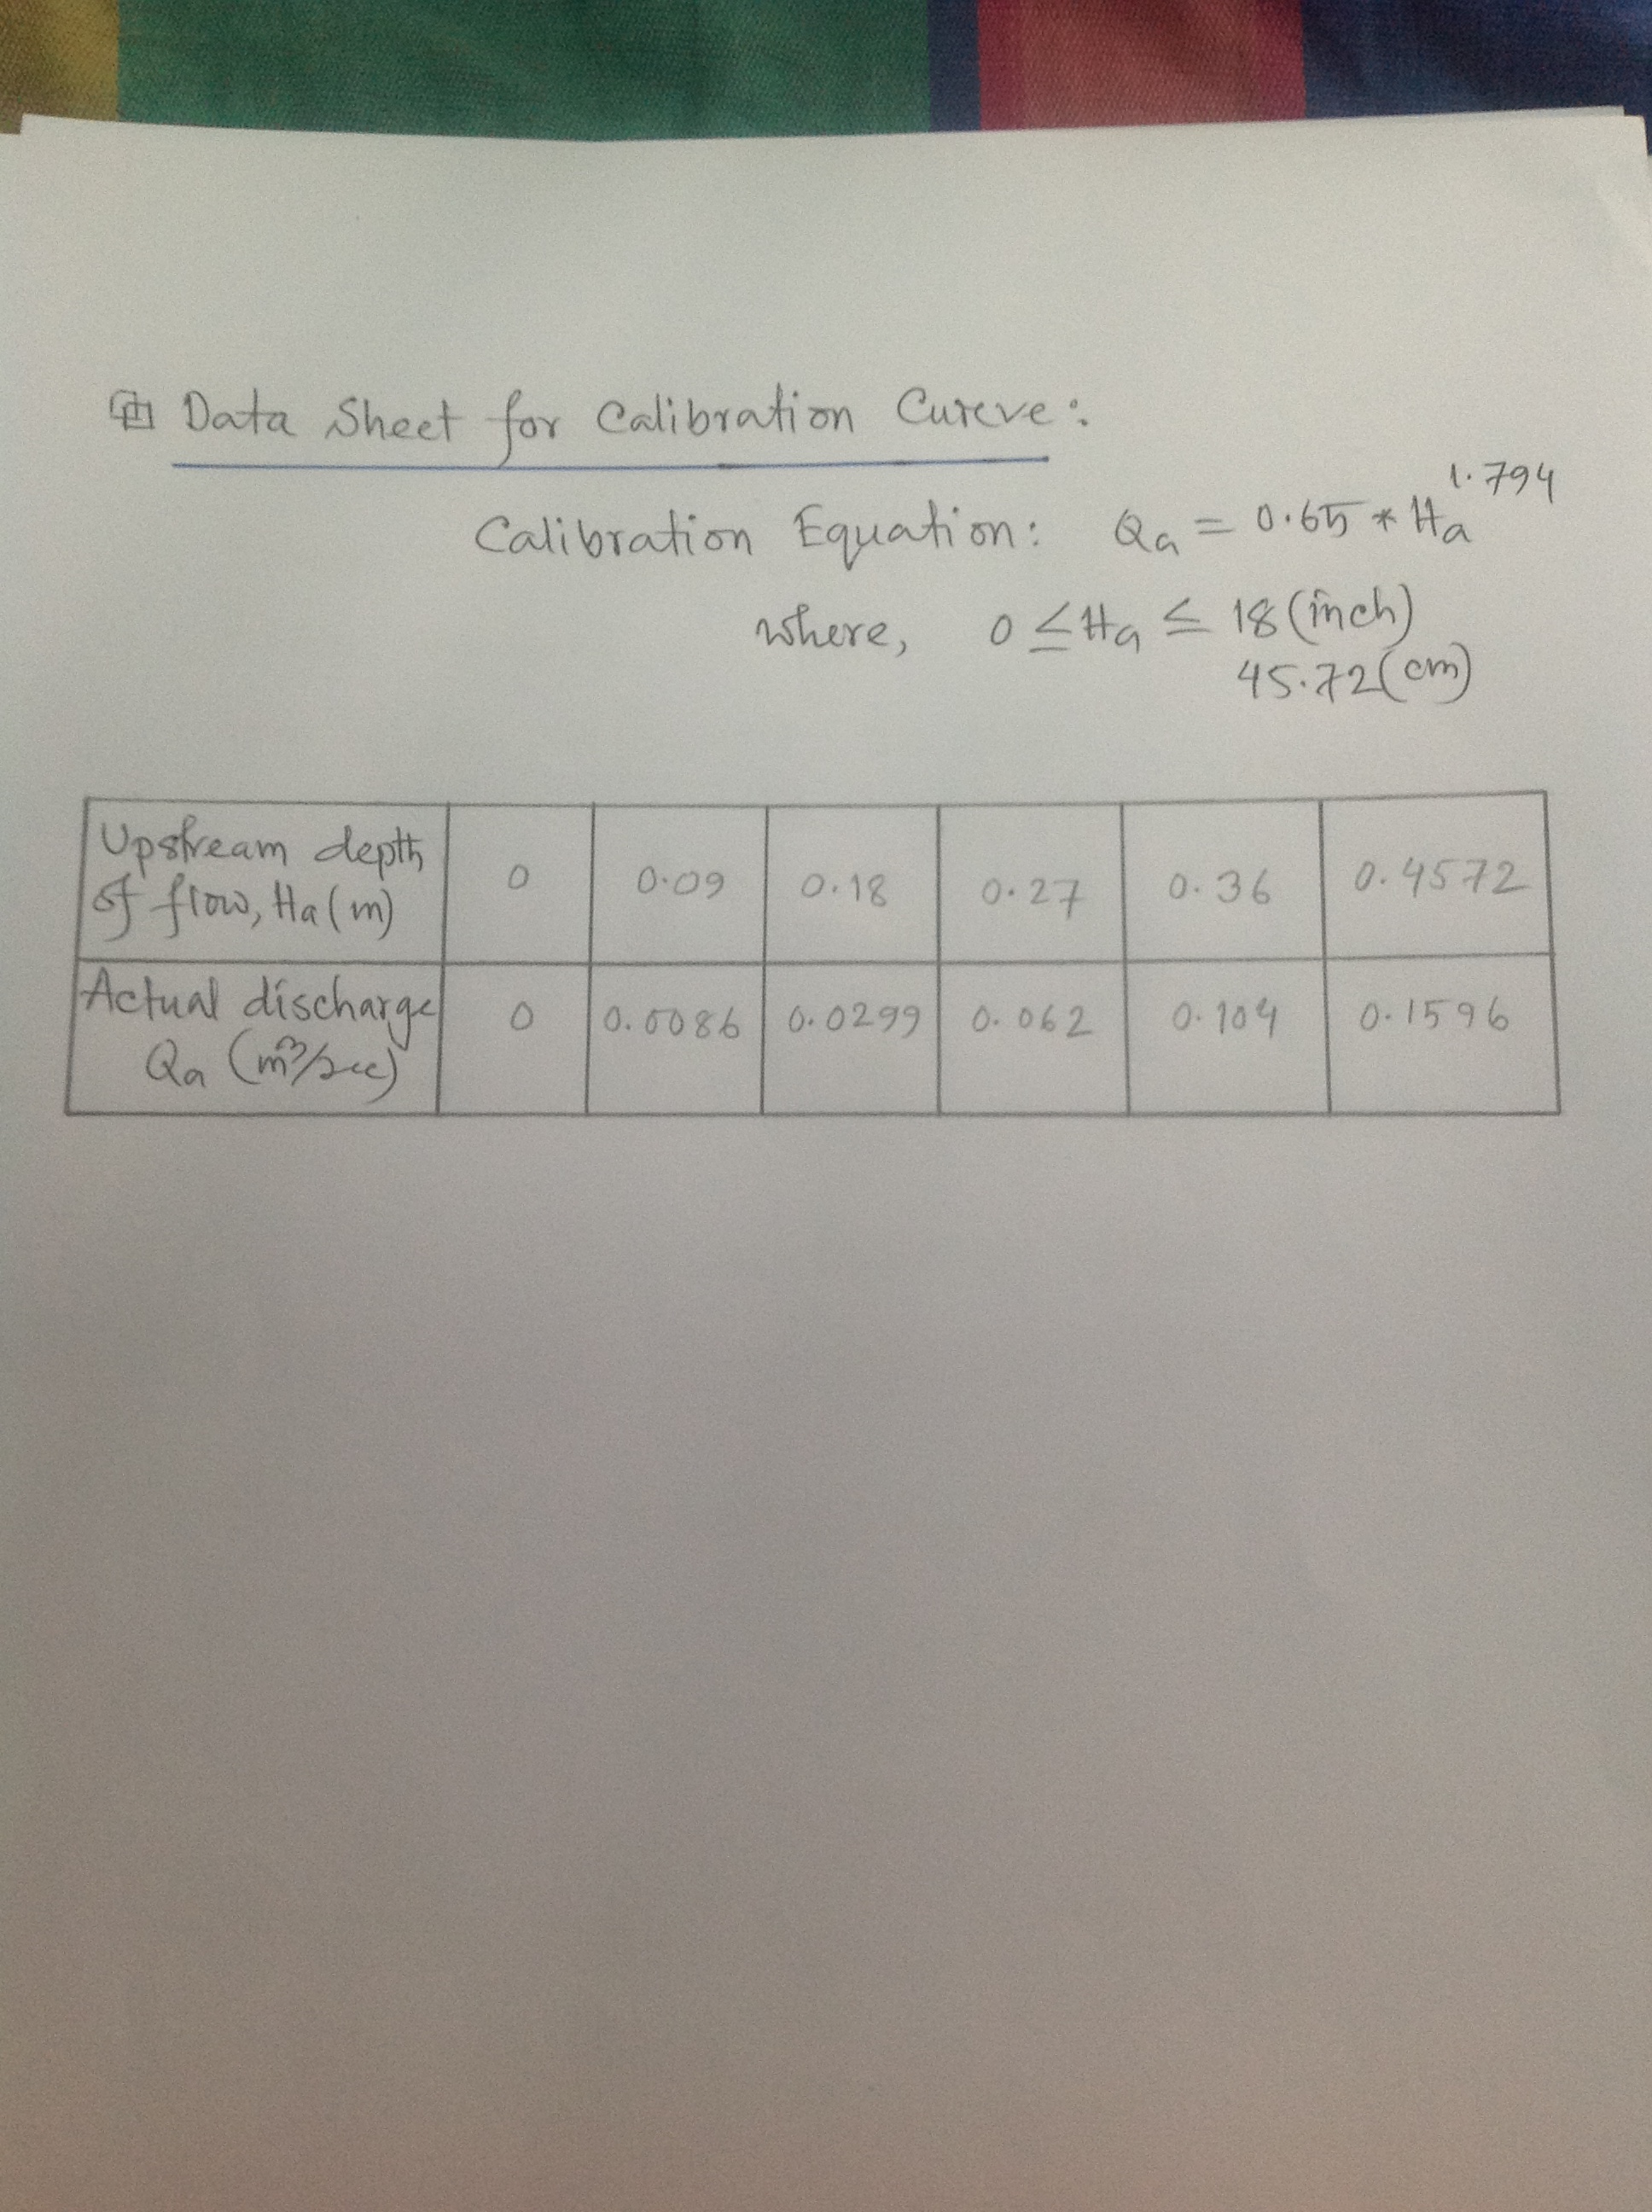 Data Sheet for Calibration Curve:
Calibration Equation: Qa = 0.65 * Ha^1.794
where, 0 ≤ Ha ≤ 18 (inch)
45.72 (cm)
Upstream depth of flow, Ha (m) 0 0.09 0.18 0.27 0.36 0.4572
Actual discharge Qa (m³/sec) 0 0.0086 0.0299 0.062 0.104 0.1596